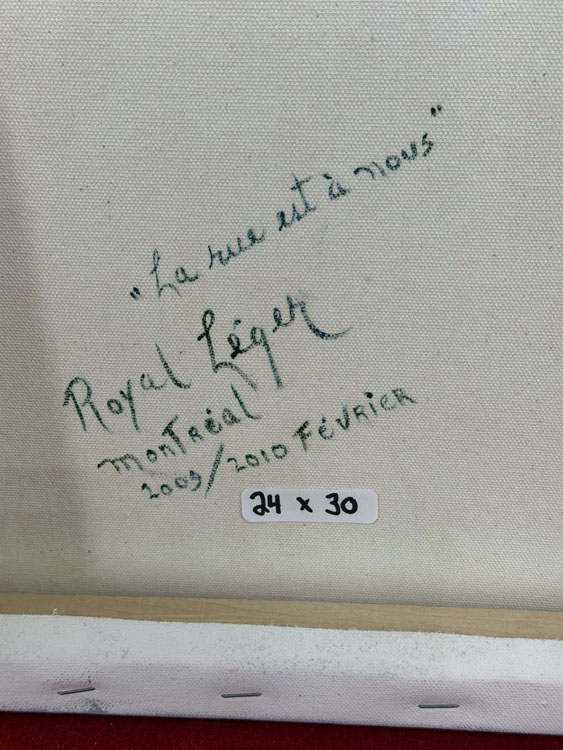 "La rue est à nous"
Royal Léger
MONTRÉAL
2009/2010 FÉVRIER
24 x 30